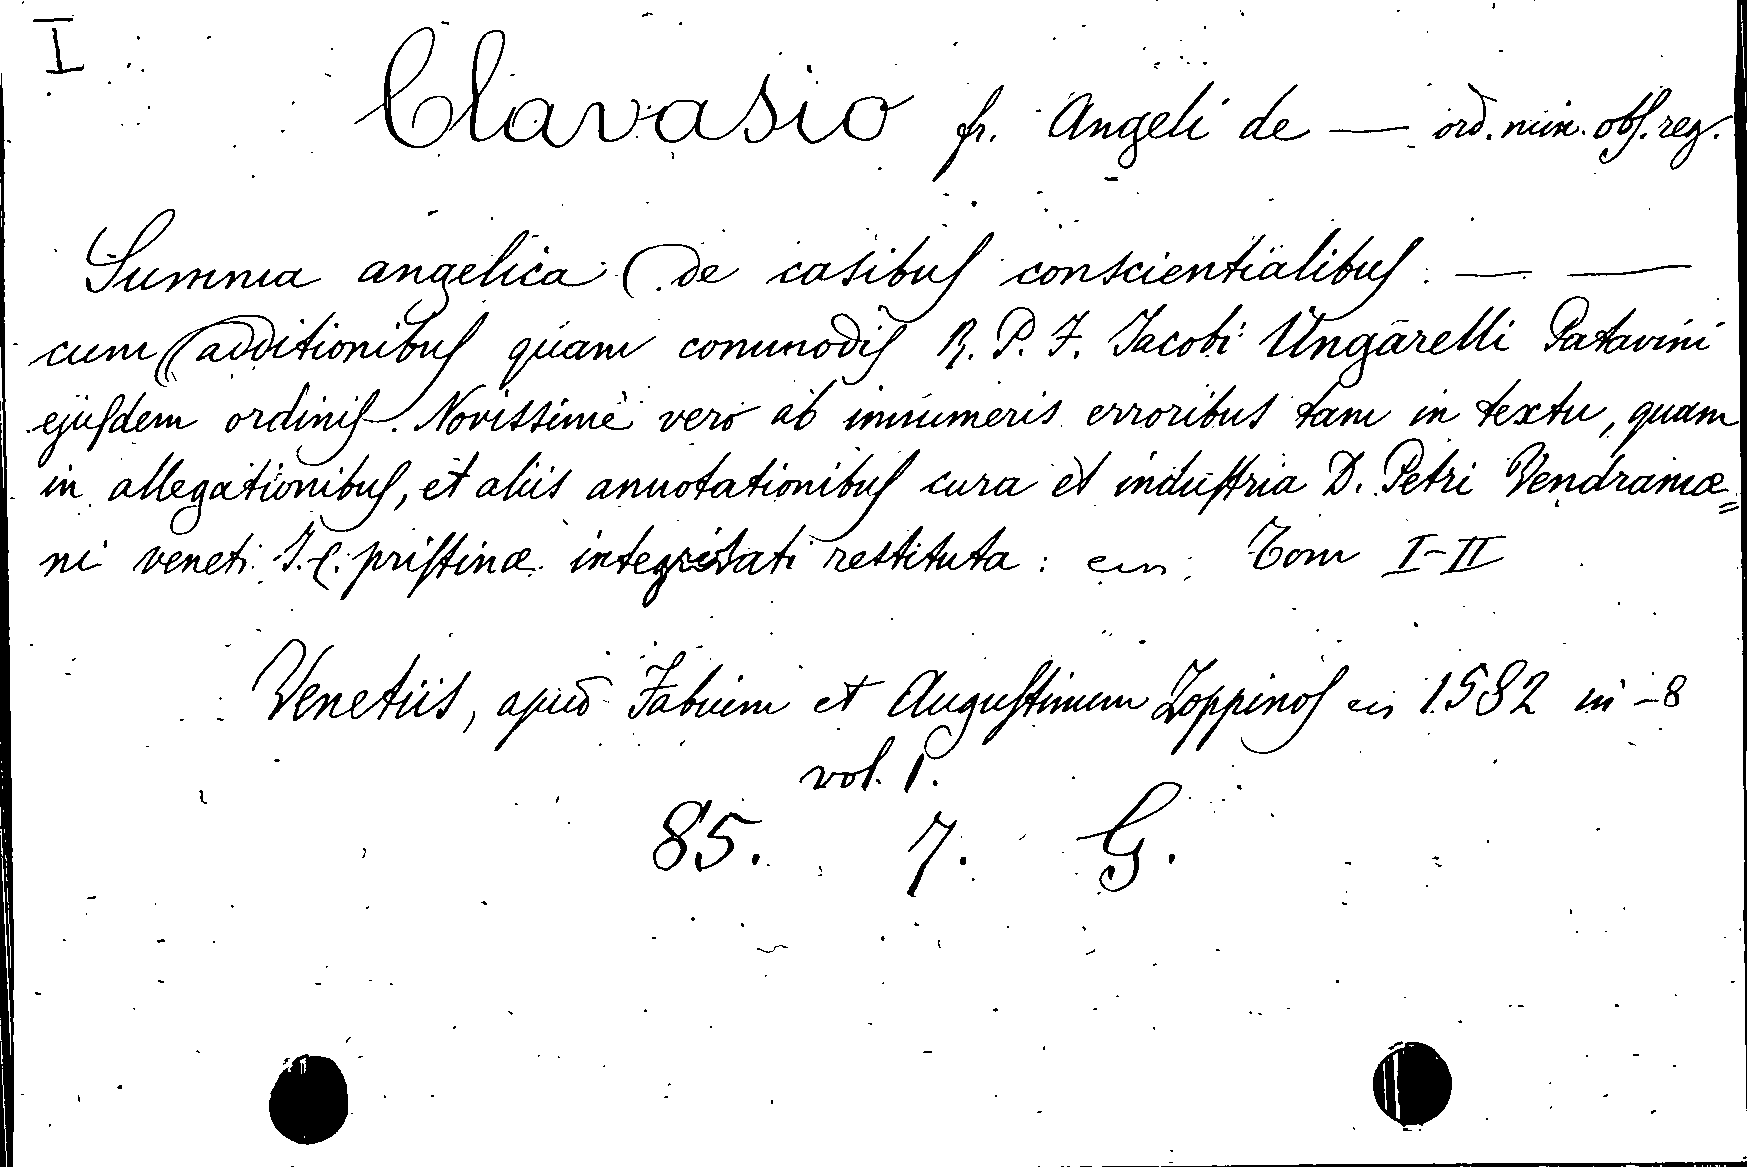 I
Clavasio fr. Angeli de — ord. min. obs. reg.
Summa angelica de casibus conscientialibus — —
cum additionibus quam commodis R. P. F. Jacobi Ungarelli Patavini
ejusdem ordinis. Novissimè vero ab innumeris erroribus tam in textu, quam
in allegationibus, et aliis annotationibus cura et industria D. Petri Vendramæ=
ni veneti J. C. pristinæ integritati restituta: Tom I-II
Venetiis, apud Fabium et Augustinum Zoppinos 1582 in-8
vol. 1.
85. 7. G.